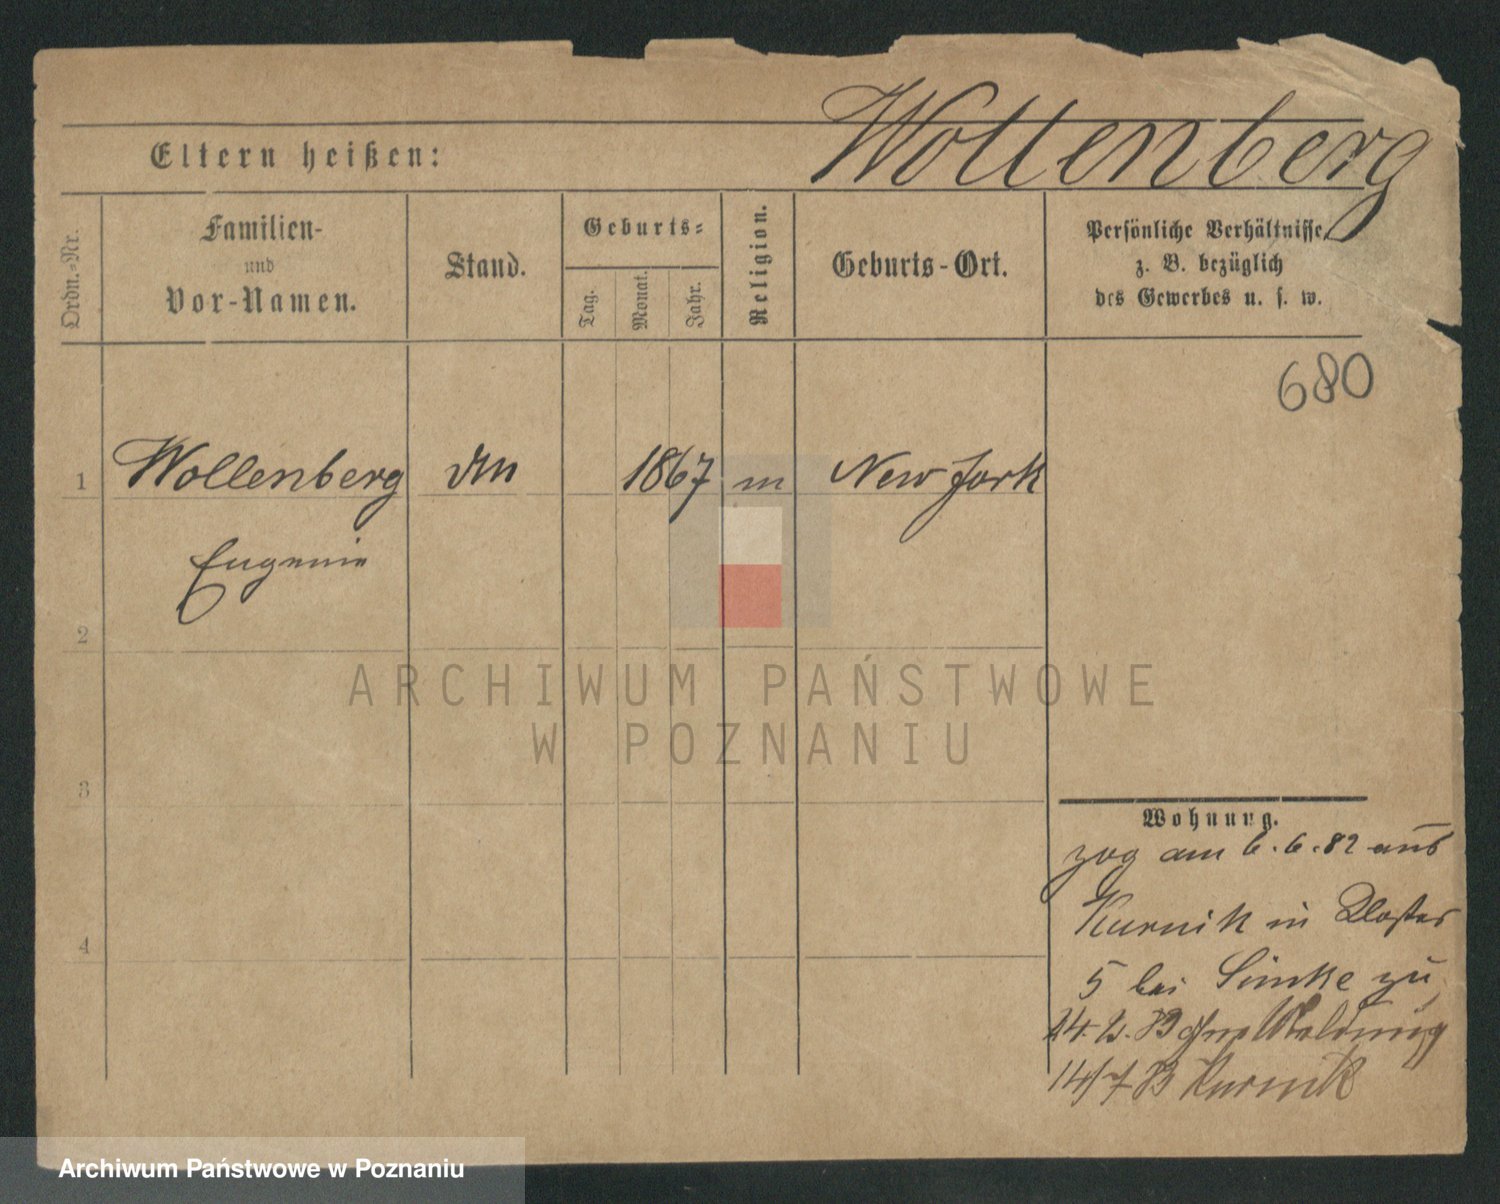 Wollenberg
Eltern heißen:
Ordn.-Nr.
Familien-
und
Vor-Namen.
Stand.
Geburts-
Tag.
Monat.
Jahr.
Religion.
Geburts-Ort.
Persönliche Verhältnisse
z. B. bezüglich
des Gewerbes u. s. w.
680
1
Wollenberg
1867
m
New York
Eugenie
2
3
4
ARCHIWUM PAŃSTWOWE
W POZNANIU
Wohnung.
zog am 6.6.82 aus
Kurnik in Kloster
5 bei Simke zu
14/7 83 Kurnik
Archiwum Państwowe w Poznaniu